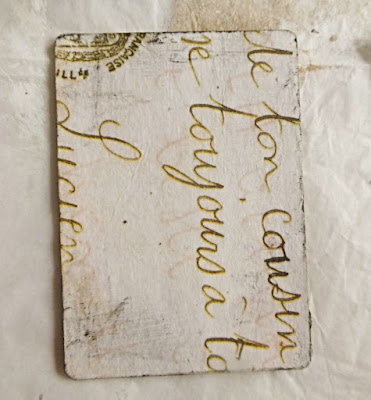 de ton cousin
ne toujours à to
Lucien
FRANCAISE